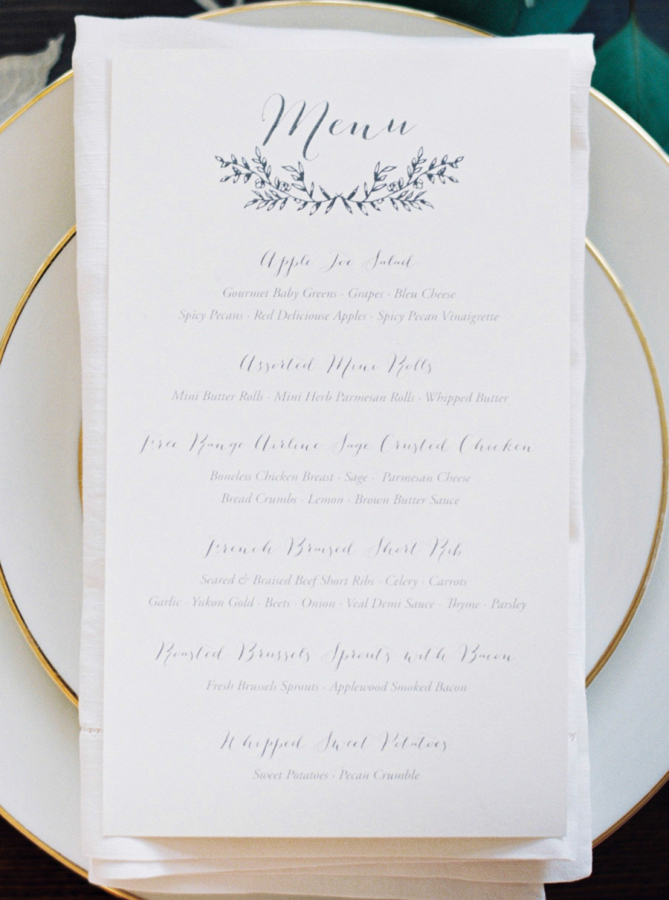 Menu
Apple Joe Salad
Gourmet Baby Greens · Grapes · Bleu Cheese
Spicy Pecans · Red Deliciouse Apples · Spicy Pecan Vinaigrette
Assorted Mini Rolls
Mini Butter Rolls · Mini Herb Parmesan Rolls · Whipped Butter
Free Range Airline Sage Crusted Chicken
Boneless Chicken Breast · Sage · Parmesan Cheese
Bread Crumbs · Lemon · Brown Butter Sauce
French Braised Short Rib
Seared & Braised Beef Short Ribs · Celery · Carrots
Garlic · Yukon Gold · Beets · Onion · Veal Demi Sauce · Thyme · Parsley
Roasted Brussels Sprouts with Bacon
Fresh Brussels Sprouts · Applewood Smoked Bacon
Whipped Sweet Potatoes
Sweet Potatoes · Pecan Crumble